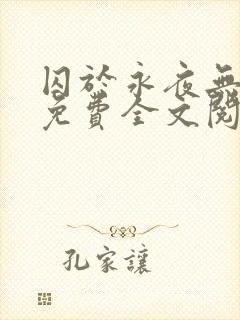 囚於永夜無
免費全文閱
孔家讓